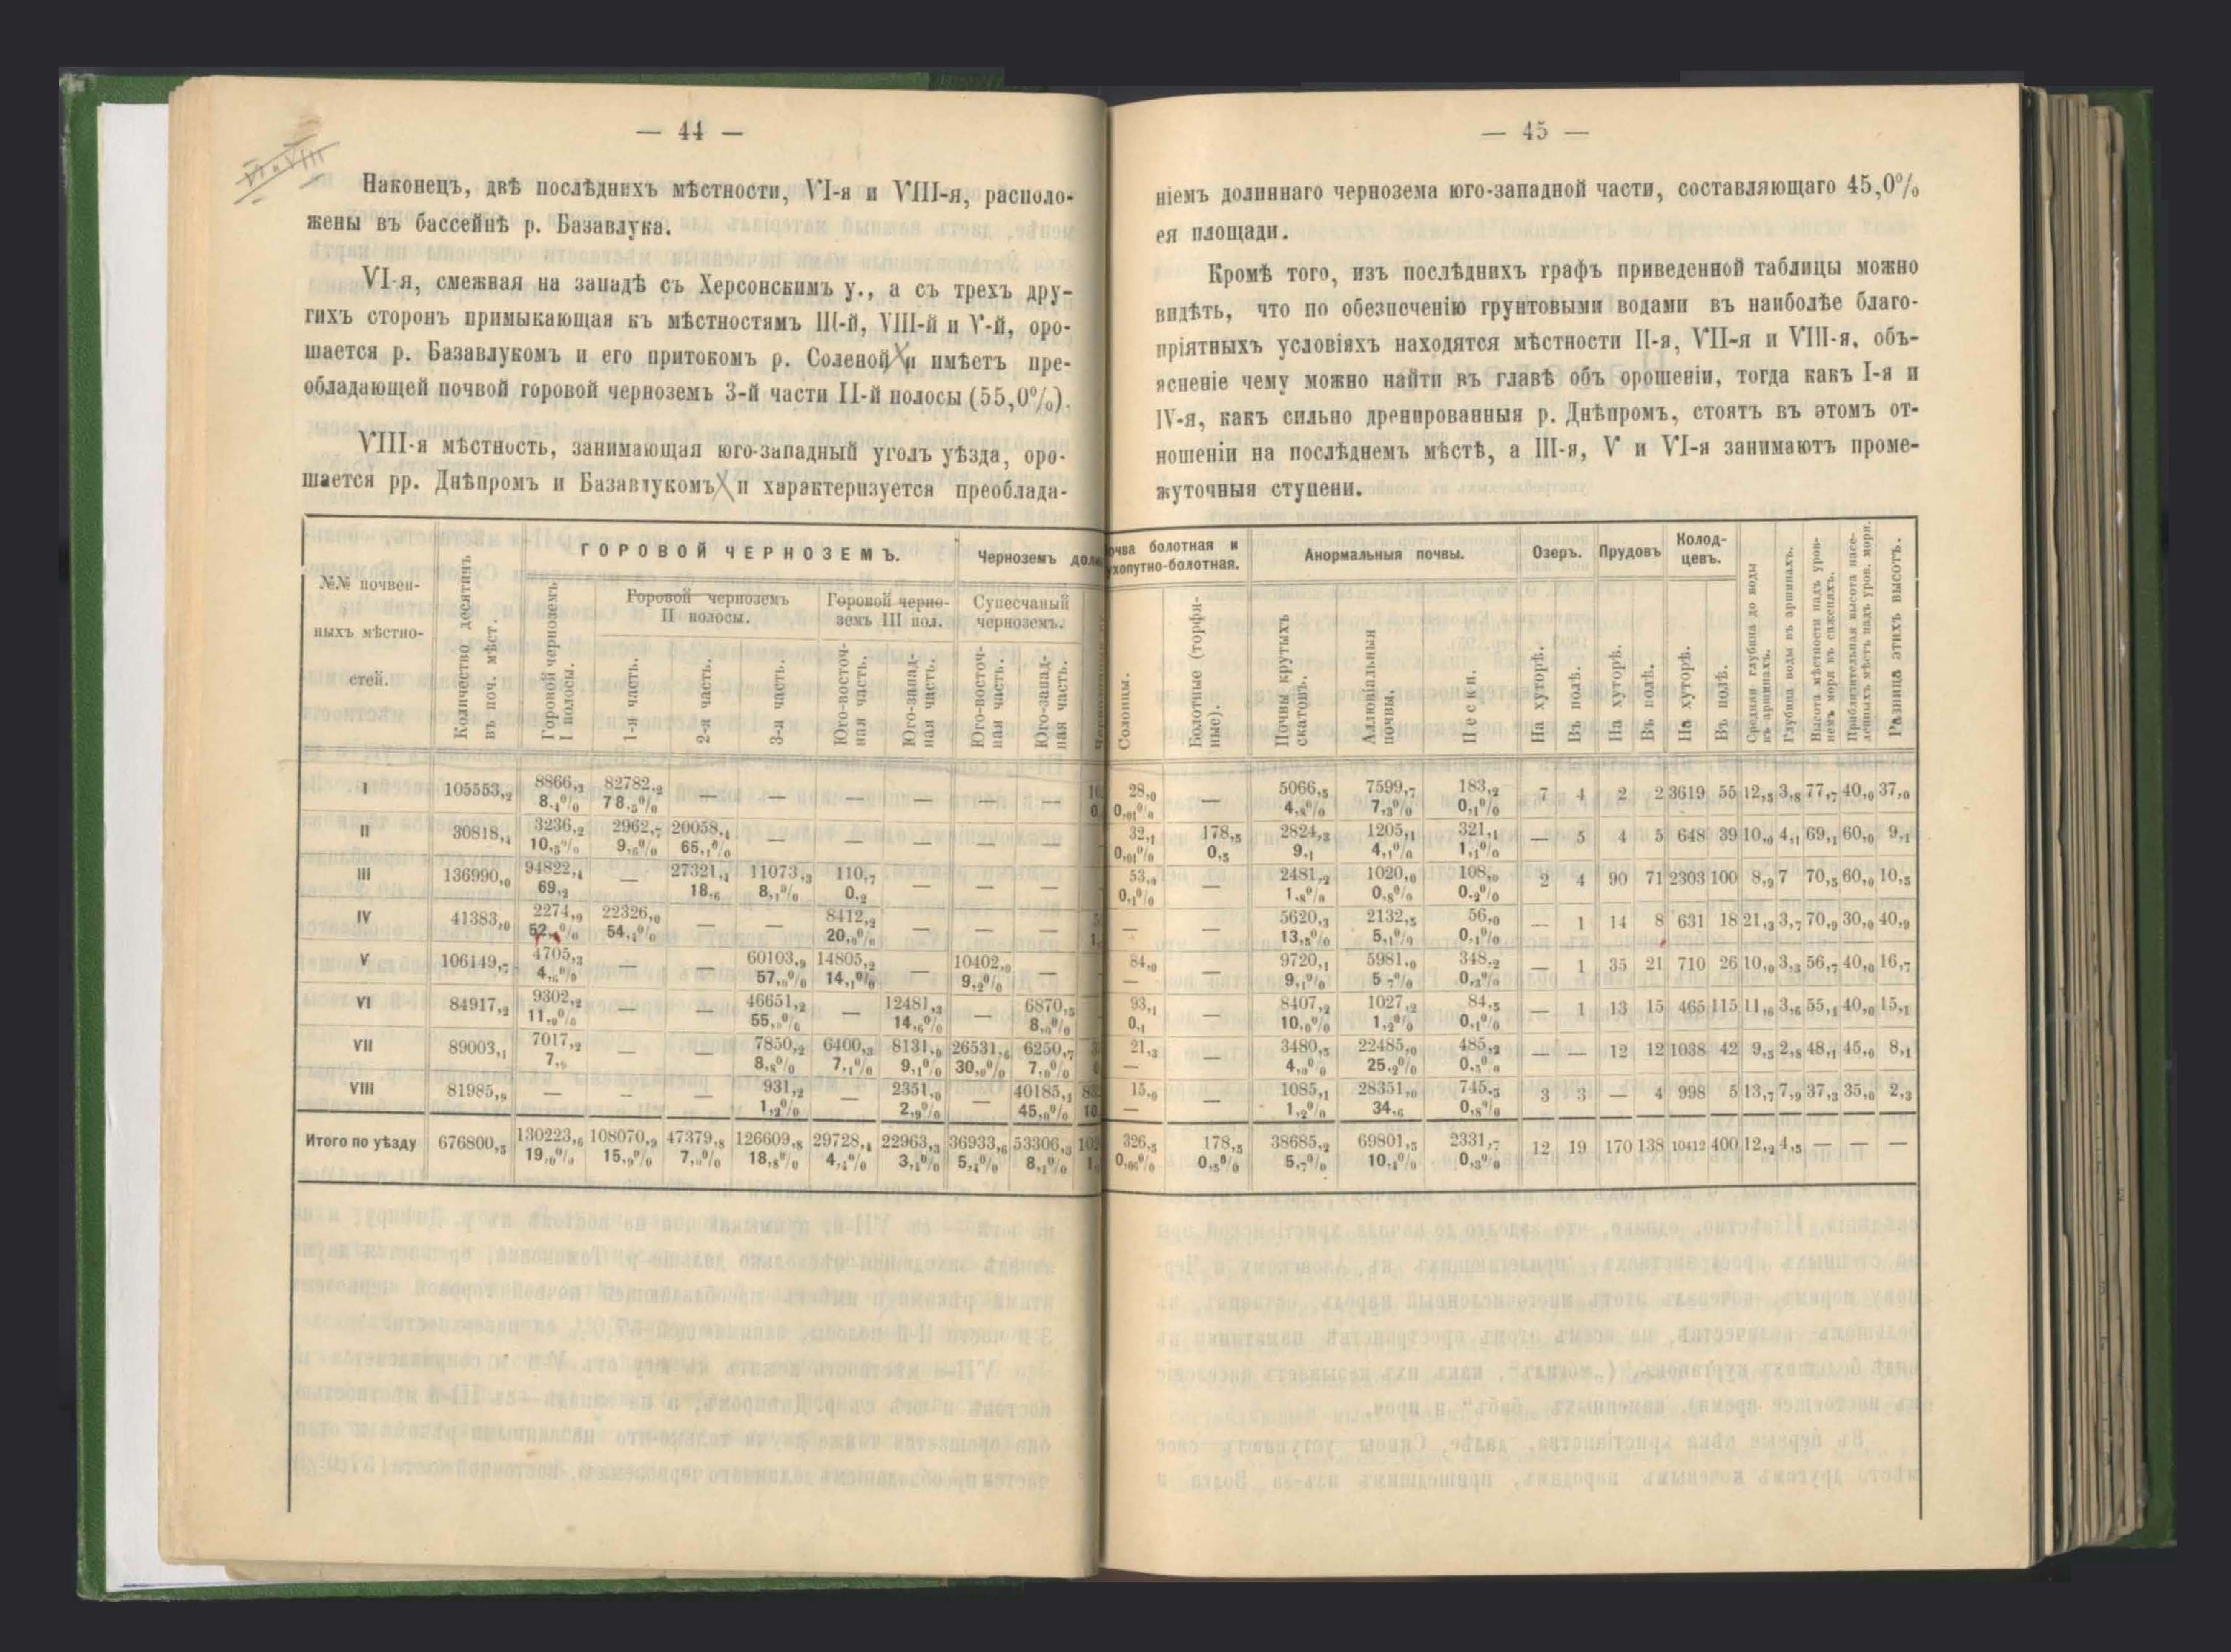 — 44 —
VI и VIII
Наконецъ, двѣ послѣднихъ мѣстности, VI-я и VIII-я, располо-
жены въ бассейнѣ р. Базавлука.
VI-я, смежная на западѣ съ Херсонскимъ у., а съ трехъ дру-
гихъ сторонъ примыкающая къ мѣстностямъ III-й, VIII-й и V-й, оро-
шается р. Базавлукомъ и его притокомъ р. Соленой и имѣетъ пре-
обладающей почвой горовой черноземъ 3-й части II-й полосы (55,0%).
VIII-я мѣстность, занимающая юго-западный уголъ уѣзда, оро-
шается рр. Днѣпромъ и Базавлукомъ и характеризуется преоблада-
№№ почвен-
ныхъ мѣстно-
стей.
Количество десятинъ
въ поч. мѣст.
ГОРОВОЙ ЧЕРНОЗЕМЪ.
Горовой черноземъ
I полосы.
Горовой черноземъ
II полосы.
1-я часть.
2-я часть.
3-я часть.
Горовой черно-
земъ III пол.
Юго-восточ-
ная часть.
Юго-запад-
ная часть.
Черноземъ
Супесчаный
черноземъ.
Юго-восточ-
ная часть.
Юго-запад-
ная часть.
I 105553,2 8866,3 82782,2 — — — — — —
8,4% 78,5%
II 30818,4 3236,2 2962,7 20058,4 — — — — —
10,5% 9,6% 65,1%
III 136990,0 94822,4 — 27321,4 11073,3 110,7 — — —
69,2 18,6 8,1% 0,2
IV 41383,0 2274,9 22326,0 — — 8412,2 — — —
54,4% 20,0%
V 106149,7 4705,3 — — 60103,9 14805,2 — 10402,0 —
4,6% 57,0% 14,1% 9,2%
VI 84917,2 9302,2 — — 46651,2 — 12481,3 — 6870,5
11,0% 55,0% 14,6% 8,0%
VII 89003,1 7017,2 — — 7850,2 6400,3 8131,0 26531,6 6250,7
7,9 8,8% 7,1% 9,1% 30,0% 7,0%
VIII 81985,9 — — — 931,2 — 2351,0 — 40185,1
1,2% 2,9% 45,0%
Итого по уѣзду 676800,5 130223,6 108070,9 47379,8 126609,8 29728,4 22963,3 36933,6 53306,3
19,0% 15,9% 7,0% 18,8% 4,4% 3,4% 5,4% 8,1%
— 45 —
ніемъ долиннаго чернозема юго-западной части, составляющаго 45,0%
ея площади.
Кромѣ того, изъ послѣднихъ графъ приведенной таблицы можно
видѣть, что по обезпеченію грунтовыми водами въ наиболѣе благо-
пріятныхъ условіяхъ находятся мѣстности II-я, VII-я и VIII-я, объ-
ясненіе чему можно найти въ главѣ объ орошеніи, тогда какъ I-я и
IV-я, какъ сильно дренированныя р. Днѣпромъ, стоятъ въ этомъ от-
ношеніи на послѣднемъ мѣстѣ, а III-я, V и VI-я занимаютъ проме-
жуточныя ступени.
болотная и
Солонцы.
Болотные (торфя-
ные).
Анормальныя почвы.
Почвы крутыхъ
скатовъ.
Аллювіальныя
почвы.
Пески.
Озеръ.
На хуторѣ.
Въ полѣ.
Прудовъ
На хуторѣ.
Въ полѣ.
Колод-
цевъ.
На хуторѣ.
Въ полѣ.
Средняя глубина до воды
въ аршинахъ.
Глубина воды въ аршинахъ.
Высота мѣстности надъ уров-
немъ моря въ саженяхъ.
Приблизительная высота насе-
ленныхъ мѣстъ надъ уров. моря.
Разница этихъ высотъ.
28,0 — 5066,5 7599,7 183,2 7 4 2 2 3619 55 12,5 3,8 77,7 40,0 37,0
0,01% 4,8% 7,3% 0,1%
32,1 178,5 2824,3 1205,1 321,4 — 5 4 5 648 39 10,0 4,1 69,1 60,0 9,1
0,01% 0,5 9,1 4,1% 1,1%
— 2481,2 1020,0 108,0 2 4 90 71 2303 100 8,9 7 70,5 60,0 10,5
0,1% 1,8% 0,8% 0,2%
— — 5620,3 2132,5 56,0 — 1 14 8 631 18 21,3 3,7 70,9 30,0 40,9
13,5% 5,1% 0,1%
84,0 — 9720,1 5981,0 348,2 — 1 35 21 710 26 10,0 3,3 56,7 40,0 16,7
— 9,1% 5,7% 0,3%
93,1 — 8407,2 1027,2 84,5 — 1 13 15 465 115 11,6 3,6 55,1 40,0 15,1
0,1 10,0% 1,2% 0,1%
21,3 — 3480,5 22485,0 485,2 — — 12 12 1038 42 9,5 2,8 48,1 45,0 8,1
— 4,0% 25,2% 0,5%
15,0 — 1085,1 28351,0 745,5 3 3 — 4 998 5 13,7 7,9 37,3 35,0 2,3
— 1,2% 34,6 0,8%
326,5 178,5 38685,2 69801,5 2331,7 12 19 170 138 10412 400 12,2 4,5 — — —
0,06% 0,5% 5,7% 10,4% 0,3%